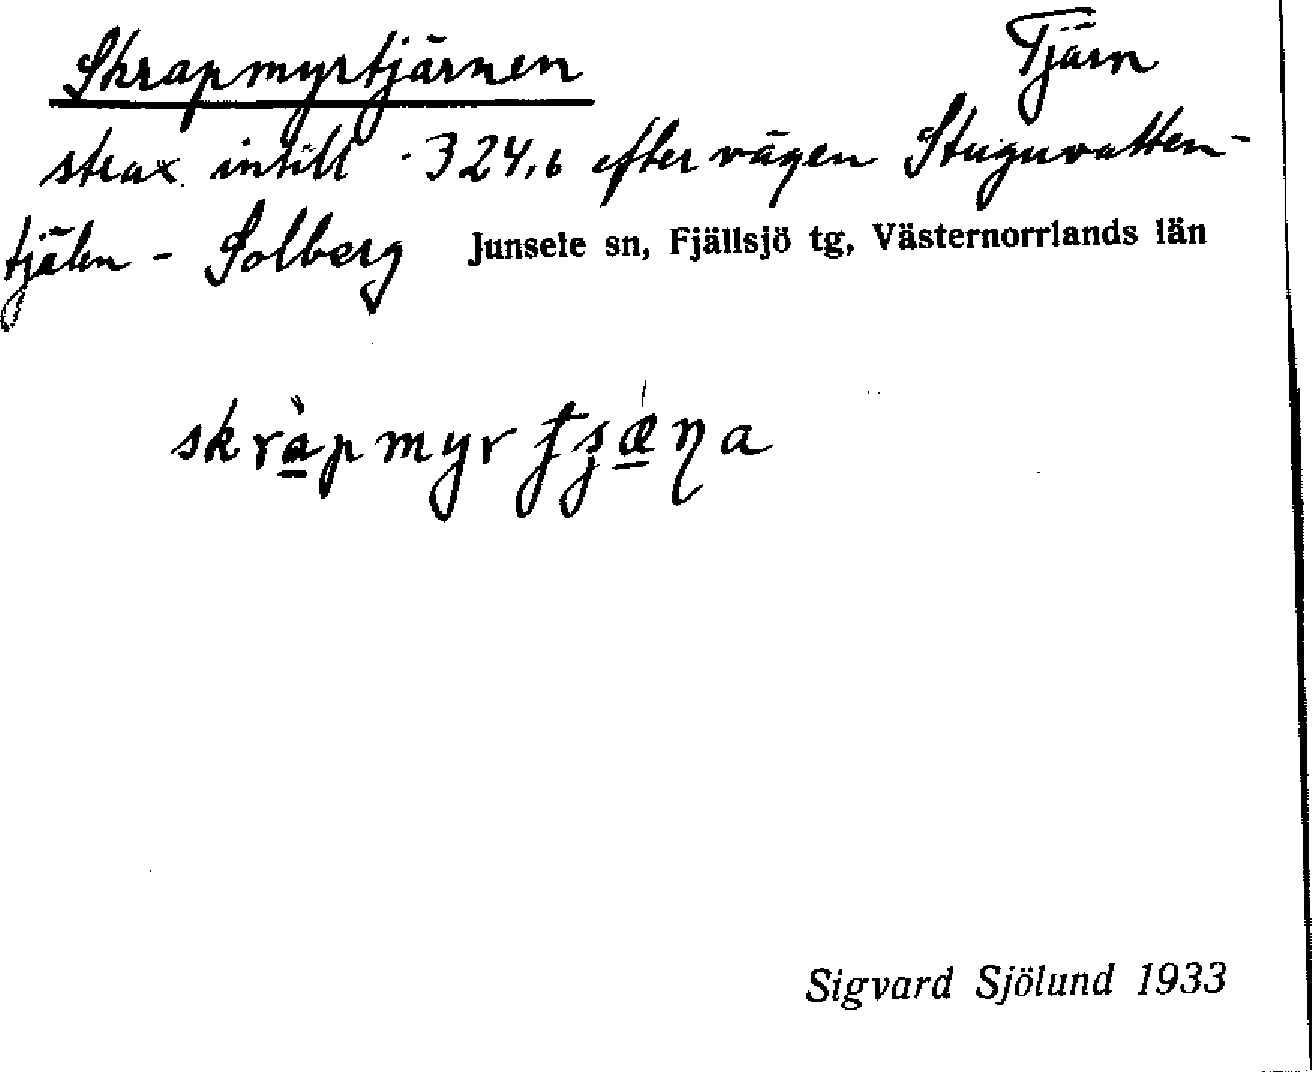 Skrapmyrtjärnen Tjärn
strax intill ·324,6 efter vägen Stuguvatten-
tjälen - Solberg Junsele sn, Fjällsjö tg, Västernorrlands län
Sigvard Sjölund 1933